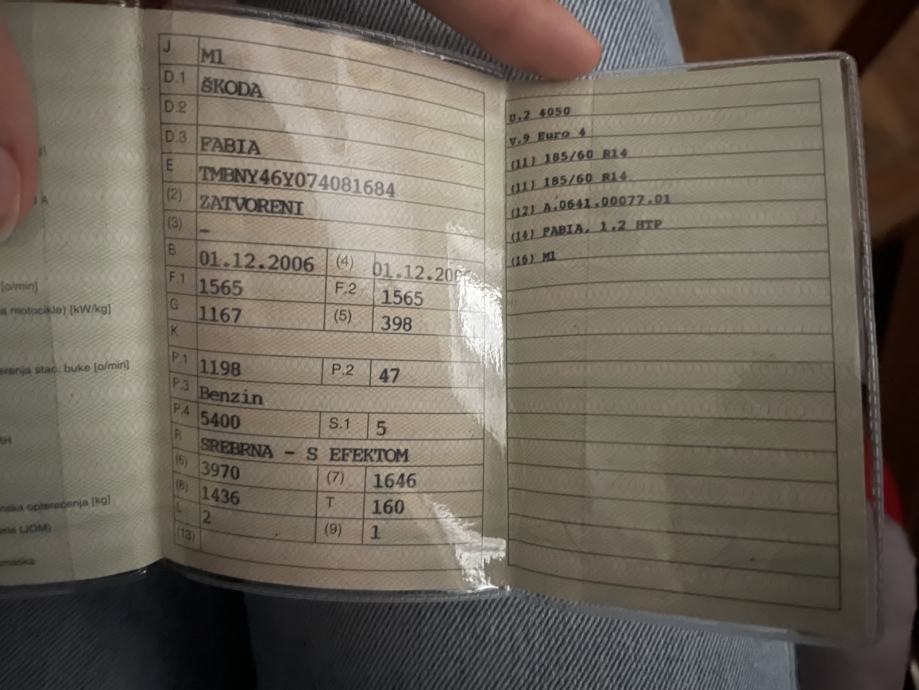 [o/min]
a motocikle) [kW/kg]
erenja stac. buke [o/min]
nska opterećenja [kg]
(JOM)
J M1
D.1 ŠKODA
D.2
D.3 FABIA
E TMBNY46Y074081684
(2) ZATVORENI
(3) –
B 01.12.2006 (4) 01.12.200
F.1 1565 F.2 1565
G 1167 (5) 398
K
P.1 1198 P.2 47
P.3 Benzin
P.4 5400 S.1 5
R SREBRNA - S EFEKTOM
(6) 3970 (7) 1646
(8) 1436 T 160
L 2 (9) 1
(13)
U.2 4050
V.9 Euro 4
(11) 185/60 R14
(11) 185/60 R14
(12) A.0641.00077.01
(14) FABIA, 1.2 HTP
(16) M1